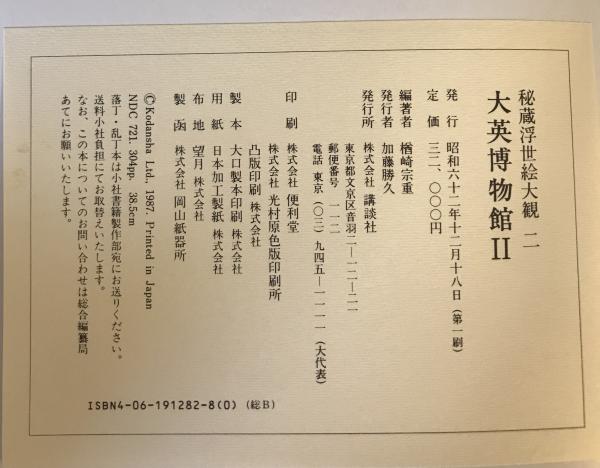 秘蔵浮世絵大観 二
大英博物館II
発行 昭和六十二年十二月十八日（第一刷）
定価 三二、〇〇〇円
編著者 楢崎宗重
発行者 加藤勝久
発行所 株式会社 講談社
東京都文京区音羽二—一二—二一
郵便番号 一一二
電話 東京（〇三）九四五—一一一一（大代表）
印刷 株式会社 便利堂
株式会社 光村原色版印刷所
凸版印刷 株式会社
製本 大口製本印刷 株式会社
用紙 日本加工製紙 株式会社
布地 望月 株式会社
製函 株式会社 岡山紙器所
©Kodansha Ltd., 1987. Printed in Japan
NDC 721. 304pp. 38.5cm
落丁・乱丁本は小社書籍製作部宛にお送りください。
送料小社負担にてお取替えいたします。
なお、この本についてのお問い合わせは総合編纂局
あてにお願いいたします。
ISBN4-06-191282-8(0) (総B)